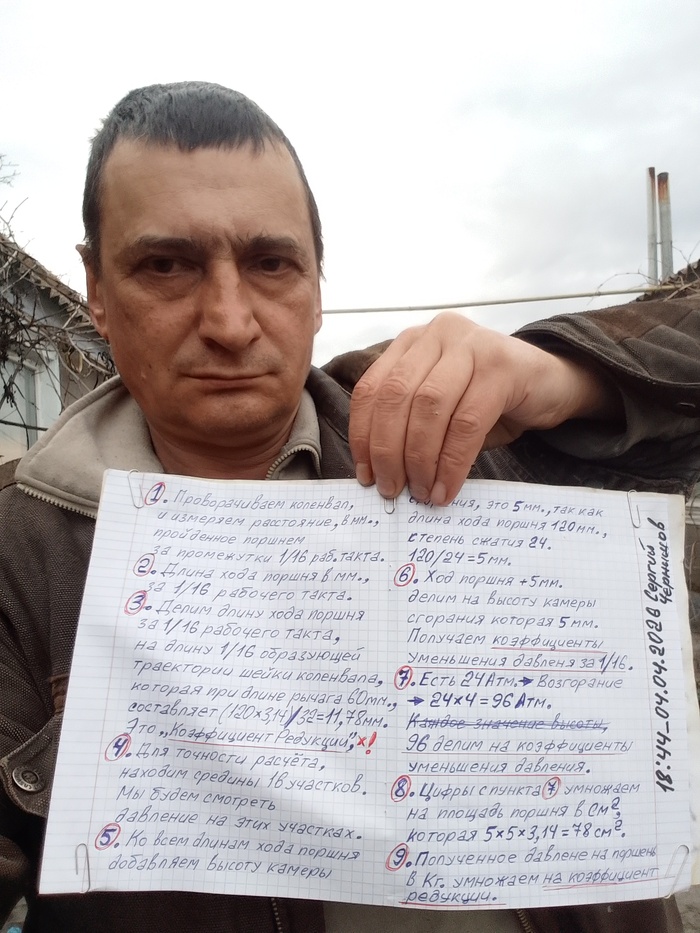 1. Проворачиваем коленвал,
и измеряем расстояние, в мм.,
пройденное поршнем
за промежутки 1/16 раб. такта.
2. Длина хода поршня в мм.,
за 1/16 рабочего такта.
3. Делим длину хода поршня
за 1/16 рабочего такта,
на длину 1/16 образующей
траектории шейки коленвала,
которая при длине рычага 60мм.,
составляет (120×3,14)/32=11,78мм.
Это „Коэффициент Редукций", х!
4. Для точности расчёта,
находим средины 16 участков.
Мы будем смотреть
давление на этих участках.
5. Ко всем длинам хода поршня
добавляем высоту камеры
сгорания, это 5мм., так как
длина хода поршня 120мм.,
степень сжатия 24.
120/24=5мм.
6. Ход поршня +5мм.
делим на высоту камеры
сгорания которая 5мм.
Получаем коэффициенты
уменьшения давленя за 1/16.
7. Есть 24 Атм. → Возгорание
→ 24×4=96 Атм.
Каждое значение высоты,
96 делим на коэффициенты
уменьшения давления.
8. Цифры с пункта 7 умножаем
на площадь поршня в См²,
которая 5×5×3,14=78 см².
9. Полученное давлене на поршень
в Кг. умножаем на коэффициент
редукции.
18:44_04.04.2026 Сергий
Черницов